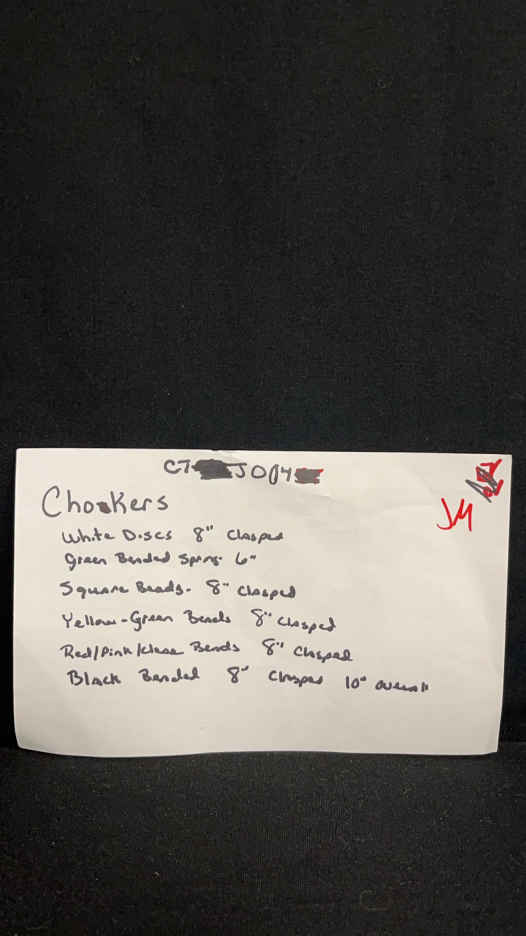 C7 JO04
JM
Chookers
White Discs 8" Clasped
Green Beaded Spring 6"
Square Beads- 8" Clasped
Yellow-Green Beads 8" Clasped
Red/Pink/Clear Beads 8" Clasped
Black Beaded 8" Clasped 10" overall